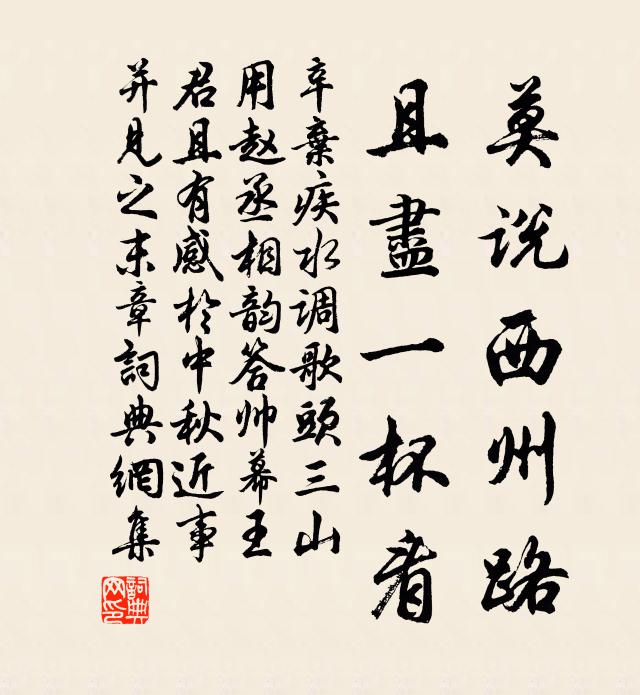 莫说西州路
且盡一杯看
辛棄疾水调歌頭三山
用赵丞相韵答帅幕王
君且有感於中秋近事
并见之末章詞典網集
詞典网印